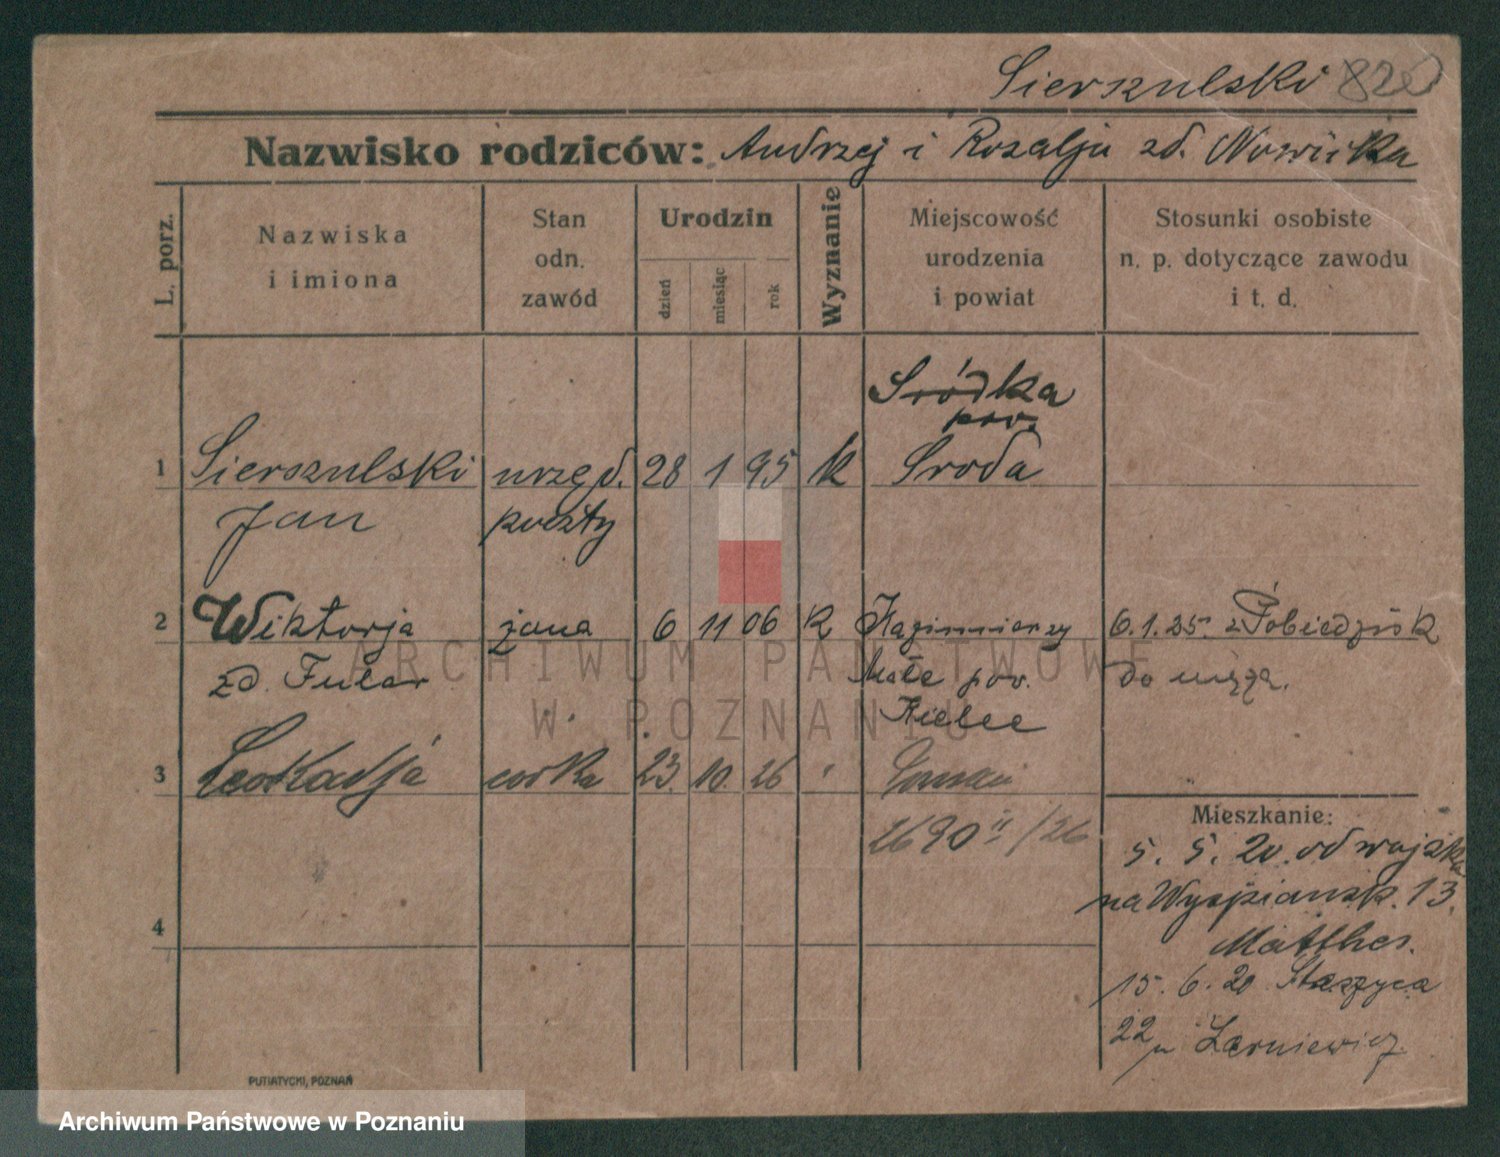 Sierszulski 820
Nazwisko rodziców: Andrzej i Rozalja zd. Nowicka
L. porz.
Nazwiska
i imiona
Stan
odn.
zawód
Urodzin
dzień
miesiąc
rok
Wyznanie
Miejscowość
urodzenia
i powiat
Stosunki osobiste
n. p. dotyczące zawodu
i t. d.
Śródka
pow.
1 Sierszulski urzęd. 28 1 95 k Środa
Jan poczty
2 Wiktorja żona 6 11 06 k Kazimierzy 6.1.25. z Pobiedzisk
zd. Fular Małe pow. do męża.
Kielce
3 Leokadja córka 23. 10. 26
2690 II/26
Mieszkanie:
5. 5. 20. od wojska
na Wyspiańsk. 13.
Matthes.
4
15. 6. 20 Staszyca
22 u Żarniewicz.
PUTIATYCKI, POZNAŃ
ARCHIWUM PAŃSTWOWE
W POZNANIU
Archiwum Państwowe w Poznaniu